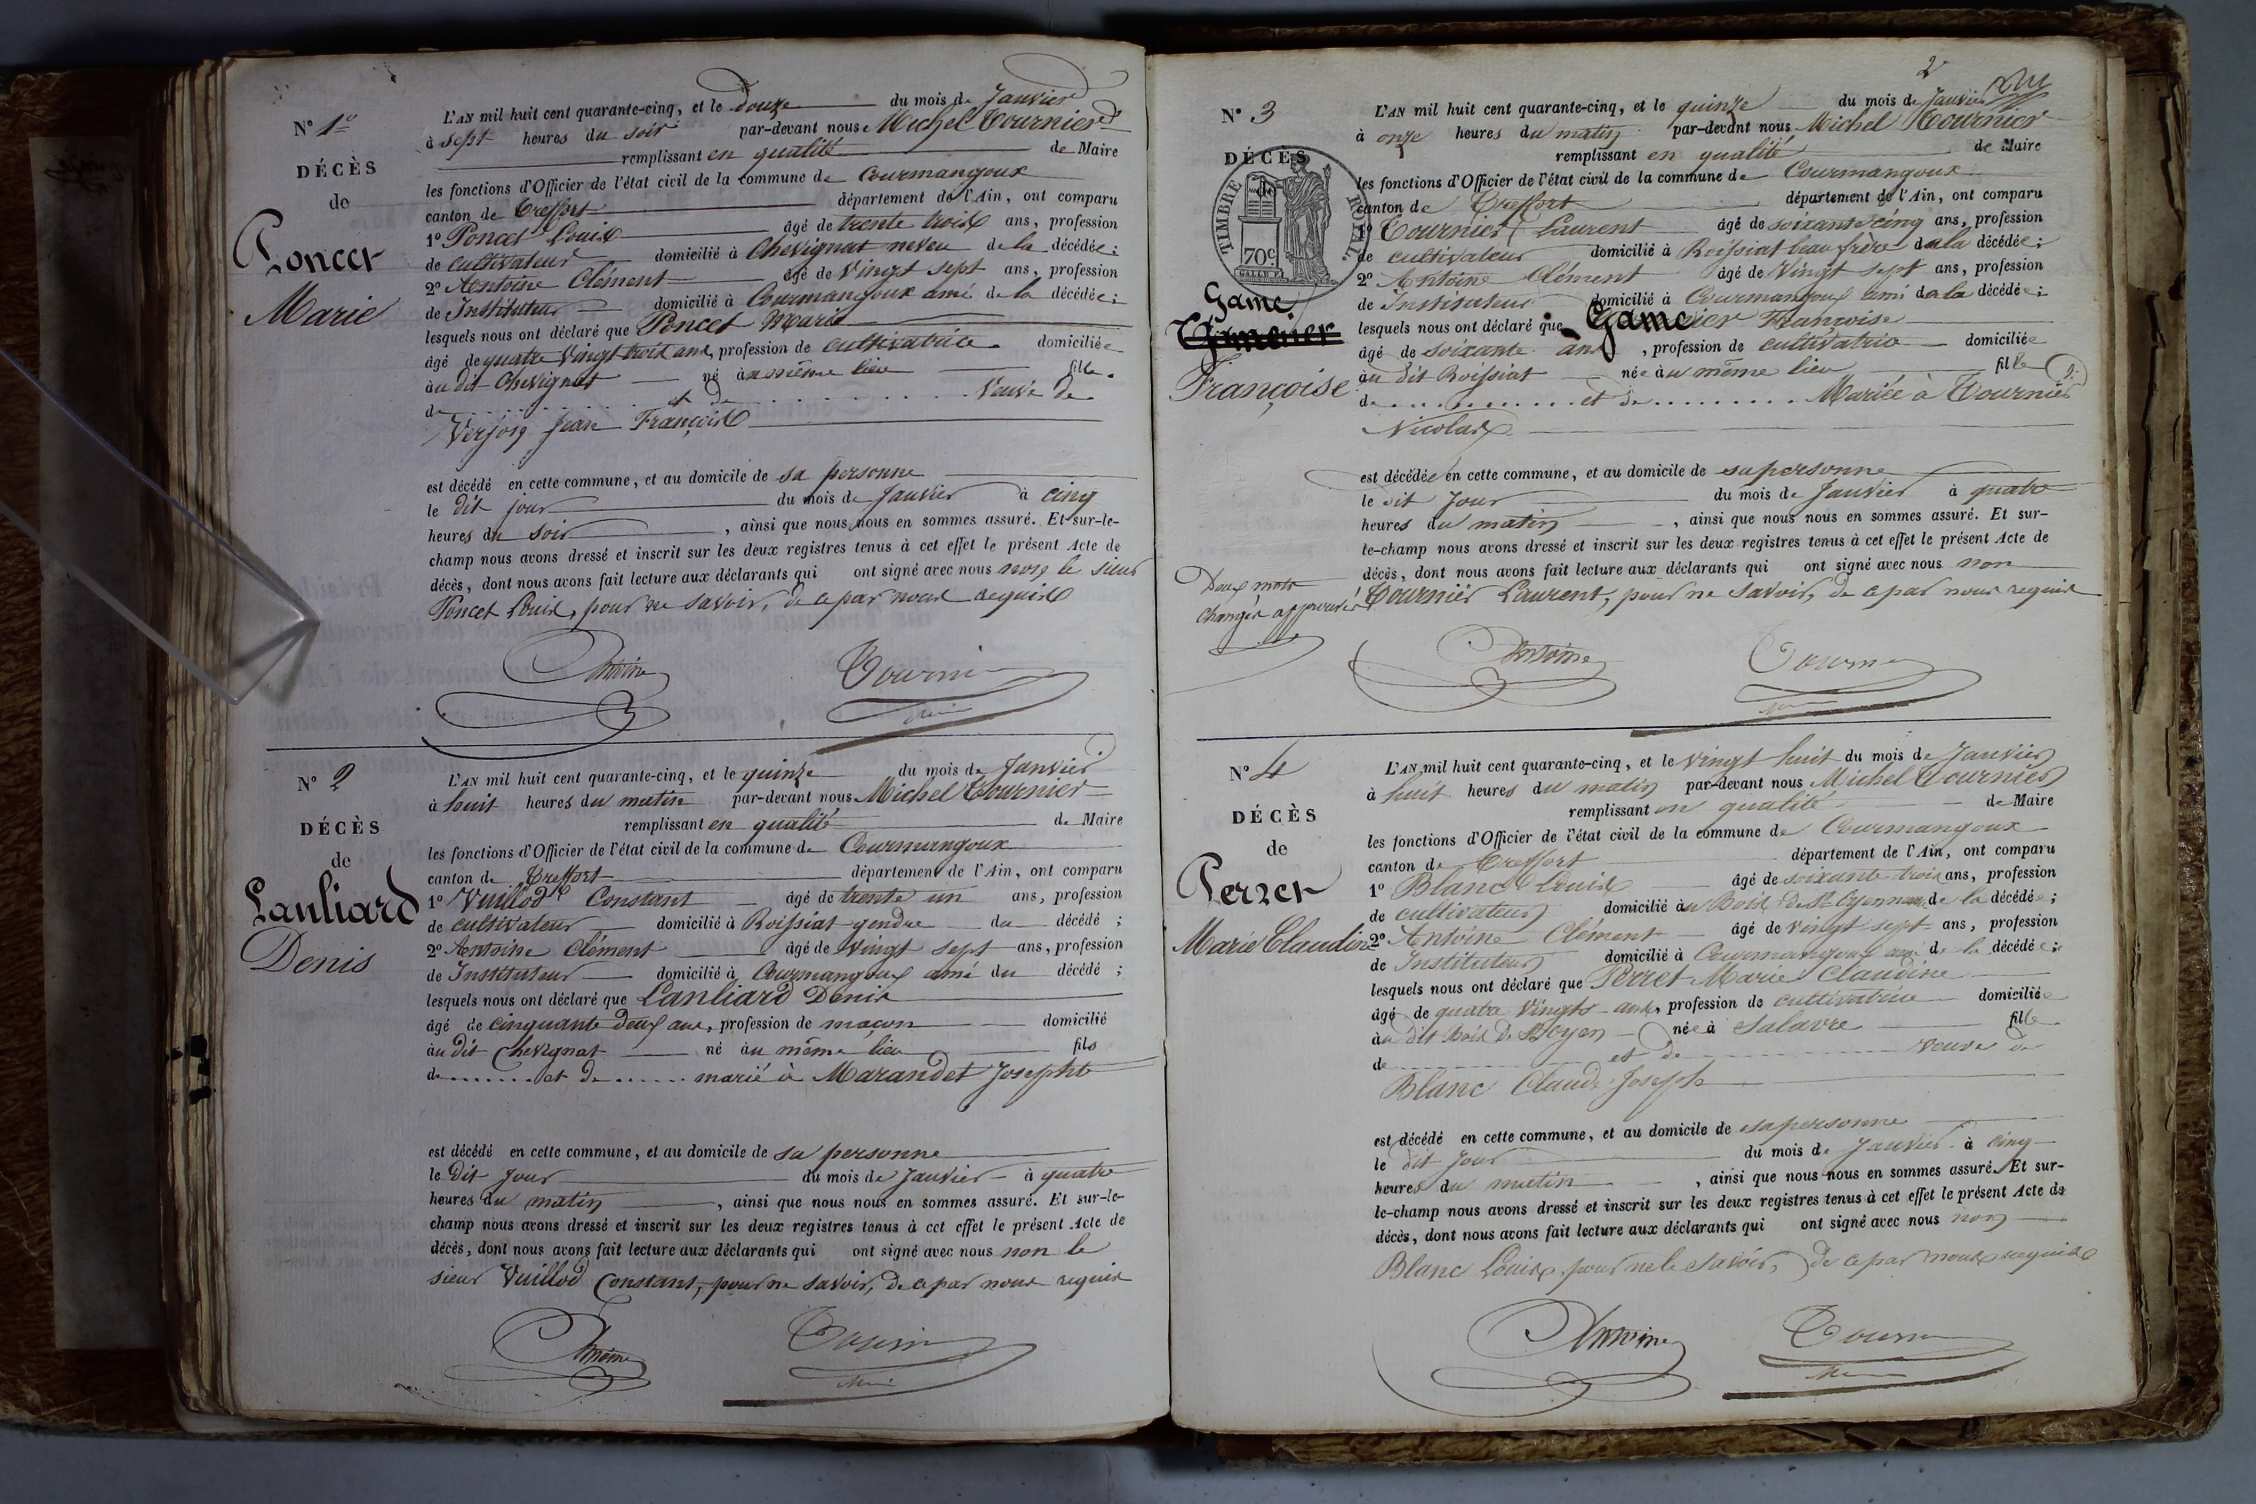 N° 1er
DÉCÈS
de
Poncet
Marie
L'AN mil huit cent quarante-cinq, et le douze du mois de Janvier
à sept heures du soir par-devant nous Michel Tournier
remplissant en qualité de Maire
les fonctions d'Officier de l'état civil de la commune de Courmangoux
canton de Treffort département de l'Ain, ont comparu
1° Poncet Louis âgé de trente trois ans, profession
de cultivateur domicilié à Chevignat neveu de la décédée;
2° Antoine Clément âgé de vingt sept ans, profession
de Instituteur domicilié à Courmangoux ami de la décédée;
lesquels nous ont déclaré que Poncet Marie
âgé de quatre vingt trois ans, profession de cultivatrice domiciliée
au dit Chevignat né au même lieu fille
de ........ et de ........ veuve de
Verjon Jean François
est décédé en cette commune, et au domicile de sa personne
le dit jour du mois de Janvier à cinq
heures du soir, ainsi que nous nous en sommes assuré. Et sur-le-
champ nous avons dressé et inscrit sur les deux registres tenus à cet effet le présent Acte de
décès, dont nous avons fait lecture aux déclarants qui ont signé avec nous non le sieur
Poncet Louis, pour ne savoir, de ce par nous requis
Antoine Tournier
N° 2
DÉCÈS
de
Lanliard
Denis
L'AN mil huit cent quarante-cinq, et le quinze du mois de Janvier
à huit heures du matin par-devant nous Michel Tournier
remplissant en qualité de Maire
les fonctions d'Officier de l'état civil de la commune de Courmangoux
canton de Treffort département de l'Ain, ont comparu
1° Vuillod Constant âgé de trente un ans, profession
de cultivateur domicilié à Roissiat gendre du décédé;
2° Antoine Clément âgé de vingt sept ans, profession
de Instituteur domicilié à Courmangoux ami du décédé;
lesquels nous ont déclaré que Lanliard Denis
âgé de cinquante deux ans, profession de maçon domicilié
au dit Chevignat né au même lieu fils
de ........ et de ...... marié à Marandet Josephte
est décédé en cette commune, et au domicile de sa personne
le dit jour du mois de Janvier à quatre
heures du matin, ainsi que nous nous en sommes assuré. Et sur-le-
champ nous avons dressé et inscrit sur les deux registres tenus à cet effet le présent Acte de
décès, dont nous avons fait lecture aux déclarants qui ont signé avec nous non le
sieur Vuillod Constant, pour ne savoir, de ce par nous requis
Antoine Tournier
2
N° 3
DÉCÈS
de
TIMBRE ROYAL.
70c
Game
Françoise
L'AN mil huit cent quarante-cinq, et le quinze du mois de Janvier
à onze heures du matin par-devant nous Michel Tournier
remplissant en qualité de Maire
les fonctions d'Officier de l'état civil de la commune de Courmangoux
canton de Treffort département de l'Ain, ont comparu
1° Tournier Laurent âgé de soixante cinq ans, profession
de cultivateur domicilié à Roissiat beau frère de la décédée;
2° Antoine Clément âgé de vingt sept ans, profession
de Instituteur domicilié à Courmangoux ami de la décédée;
lesquels nous ont déclaré que Game Françoise
âgé de soixante ans, profession de cultivatrice domiciliée
au dit Roissiat née au même lieu fille
de ........ et de ........ Mariée à Tournier
Nicolas
est décédée en cette commune, et au domicile de sa personne
le dit jour du mois de Janvier à quatre
heures du matin, ainsi que nous nous en sommes assuré. Et sur-
le-champ nous avons dressé et inscrit sur les deux registres tenus à cet effet le présent Acte de
décès, dont nous avons fait lecture aux déclarants qui ont signé avec nous non
Tournier Laurent, pour ne savoir, de ce par nous requis
Deux mots
changés approuvés
Antoine Tournier
N° 4
DÉCÈS
de
Perret
Marie Claudine
L'AN mil huit cent quarante-cinq, et le vingt huit du mois de Janvier
à huit heures du matin par-devant nous Michel Tournier
remplissant en qualité de Maire
les fonctions d'Officier de l'état civil de la commune de Courmangoux
canton de Treffort département de l'Ain, ont comparu
1° Blanc Louis âgé de soixante trois ans, profession
de cultivateur domicilié au Bois de de la décédée;
2° Antoine Clément âgé de vingt sept ans, profession
de Instituteur domicilié à Courmangoux ami de la décédée;
lesquels nous ont déclaré que Perret Marie Claudine
âgé de quatre vingts ans, profession de cultivatrice domiciliée
au dit Bois de née à Salavre fille
de et de veuve de
Blanc Claude Joseph
est décédé en cette commune, et au domicile de sa personne
le dit jour du mois de Janvier à cinq
heures du matin, ainsi que nous nous en sommes assuré. Et sur-
le-champ nous avons dressé et inscrit sur les deux registres tenus à cet effet le présent Acte de
décès, dont nous avons fait lecture aux déclarants qui ont signé avec nous non
Blanc Louis, pour ne le savoir, de ce par nous requis
Antoine Tournier